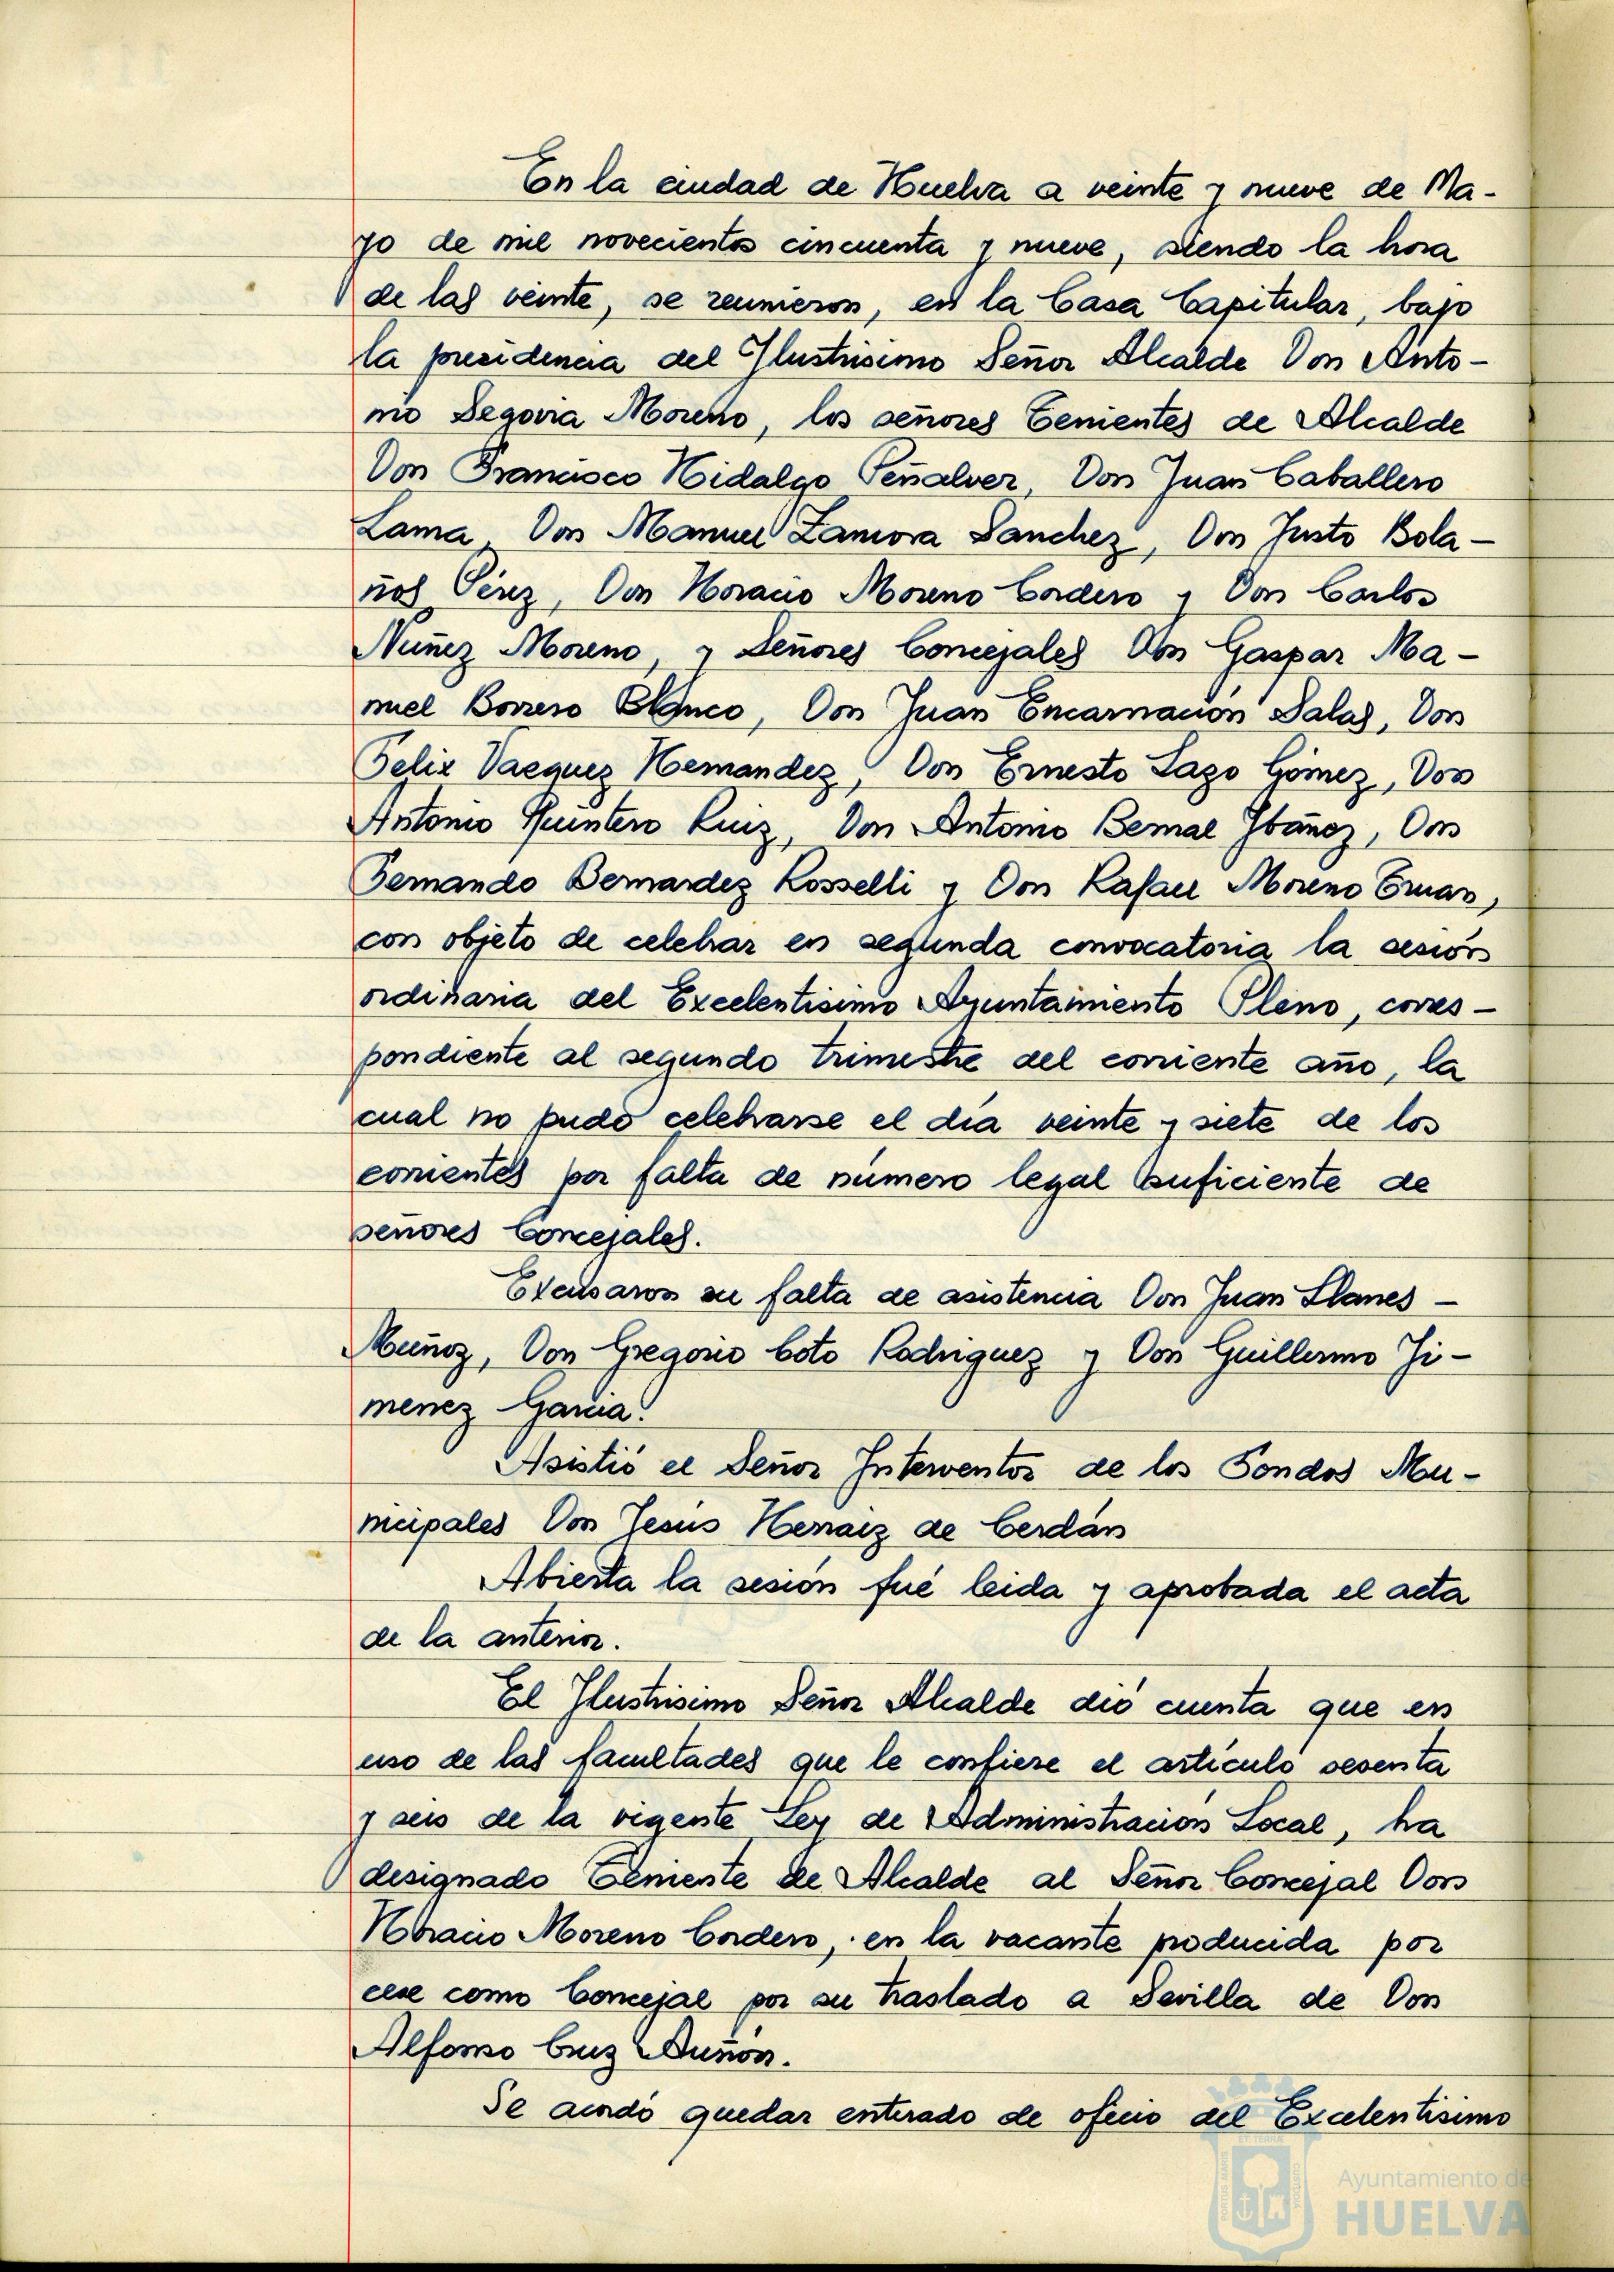 En la ciudad de Huelva a veinte y nueve de Ma-
yo de mil novecientos cincuenta y nueve, siendo la hora
de las veinte, se reunieron, en la Casa Capitular, bajo
la presidencia del Ilustrisimo Señor Alcalde Don Anto-
nio Segovia Moreno, los señores Tenientes de Alcalde
Don Francisco Hidalgo Peñalver, Don Juan Caballero
Lama, Don Manuel Zamora Sanchez, Don Justo Bola-
ños Pérez, Don Horacio Moreno Cordero y Don Carlos
Nuñez Moreno, y Señores Concejales Don Gaspar Ma-
nuel Borrero Blanco, Don Juan Encarnación Salas, Don
Felix Vazquez Hernandez, Don Ernesto Lazo Gómez, Don
Antonio Quintero Ruiz, Don Antonio Bernal Ybáñez, Don
Fernando Bernardez Rosselli y Don Rafael Moreno
con objeto de celebrar en segunda convocatoria la sesión
ordinaria del Excelentisimo Ayuntamiento Pleno, corres-
pondiente al segundo trimestre del corriente año, la
cual no pudo celebrarse el día veinte y siete de los
corrientes por falta de número legal suficiente de
señores Concejales.
Excusaron su falta de asistencia Don Juan Llanes-
Muñoz, Don Gregorio Coto Rodriguez y Don Guillermo Ji-
menez Garcia.
Asistió el Señor Interventor de los Fondos Mu-
nicipales Don Jesús Herraiz de Cerdán
Abierta la sesión fué leida y aprobada el acta
de la anterior.
El Ilustrisimo Señor Alcalde dió cuenta que en
uso de las facultades que le confiere el artículo sesenta
y seis de la vigente Ley de Administración Local, ha
designado Teniente de Alcalde al Señor Concejal Don
Horacio Moreno Cordero, en la vacante producida por
cese como Concejal por su traslado a Sevilla de Don
Alfonso Cruz Auñón.
Se acordó quedar enterado de oficio del Excelentisimo
Ayuntamiento de
HUELVA